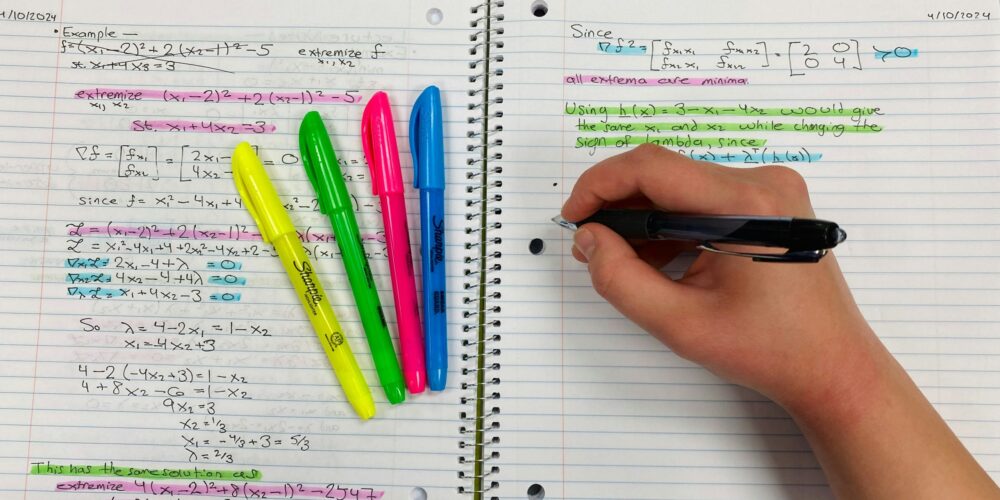 4/10/2024
• Example —
f=(x₁-2)²+2(x₂-1)²-5 extremize f
x₁, x₂
st. x₁+4x₂=3
extremize (x₁-2)²+2(x₂-1)²-5
x₁, x₂
st. x₁+4x₂=3
∇f = [fx₁ fx₂] = [2x₁- 4x₂-] = 0
since f= x₁²-4x₁+4
ℒ = (x₁-2)²+2(x₂-1)²
ℒ = x₁²-4x₁+4+2x₂²-4x₂+2-5
∇x₁ℒ = 2x₁-4+λ = 0
∇x₂ℒ = 4x₂-4+4λ = 0
∇λℒ = x₁+4x₂-3 = 0
So λ=4-2x₁=1-x₂
x₁=-4x₂+3
4-2(-4x₂+3)=1-x₂
4+8x₂-6=1-x₂
9x₂=3
x₂=1/3
x₁=-4/3+3=5/3
λ=2/3
This has the same solution as
extremize 4(x₁-2)²+8(x₂-1)²-2547
Sharpie
Sharpie
Sharpie
Sharpie
4/10/2024
Since
∇f² = [fx₁x₁ fx₁x₂ fx₂x₁ fx₂x₂] = [2 0 0 4] >0
all extrema are minima.
Using h(x)=3-x₁-4x₂ would give
the same x₁ and x₂ while chnging the
sign of lambda, since
f(x) + λᵀ(h(x))
•